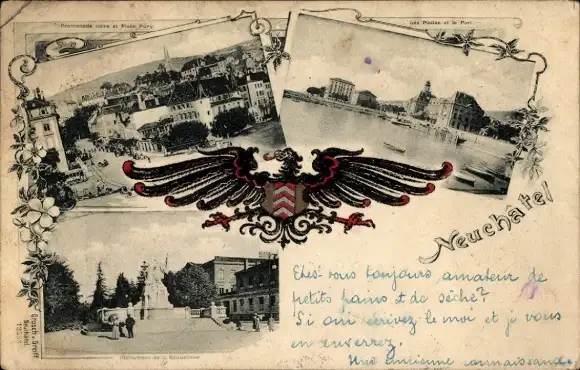 Promenade noire et Place Pury
Les Postes et le Port
Neuchâtel
Monument de la République
Etes-vous toujours amateur de
petits pains et de sèche?
Si oui écrivez le moi et je vous
en enverrez.
Une ancienne connaissance